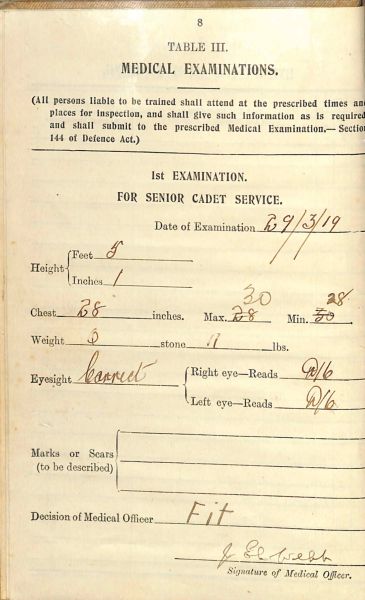 8
TABLE III.
MEDICAL EXAMINATIONS.
(All persons liable to be trained shall attend at the prescribed times and
places for inspection, and shall give such information as is required
and shall submit to the prescribed Medical Examination.—Section
144 of Defence Act.)
1st EXAMINATION.
FOR SENIOR CADET SERVICE.
Date of Examination 29/3/19
Height Feet 5
Inches 1
Chest 28 inches. Max. 28 30 Min. 30 28
Weight stone lbs.
Eyesight Correct Right eye—Reads
Left eye—Reads
Marks or Scars
(to be described)
Decision of Medical Officer Fit
Signature of Medical Officer.